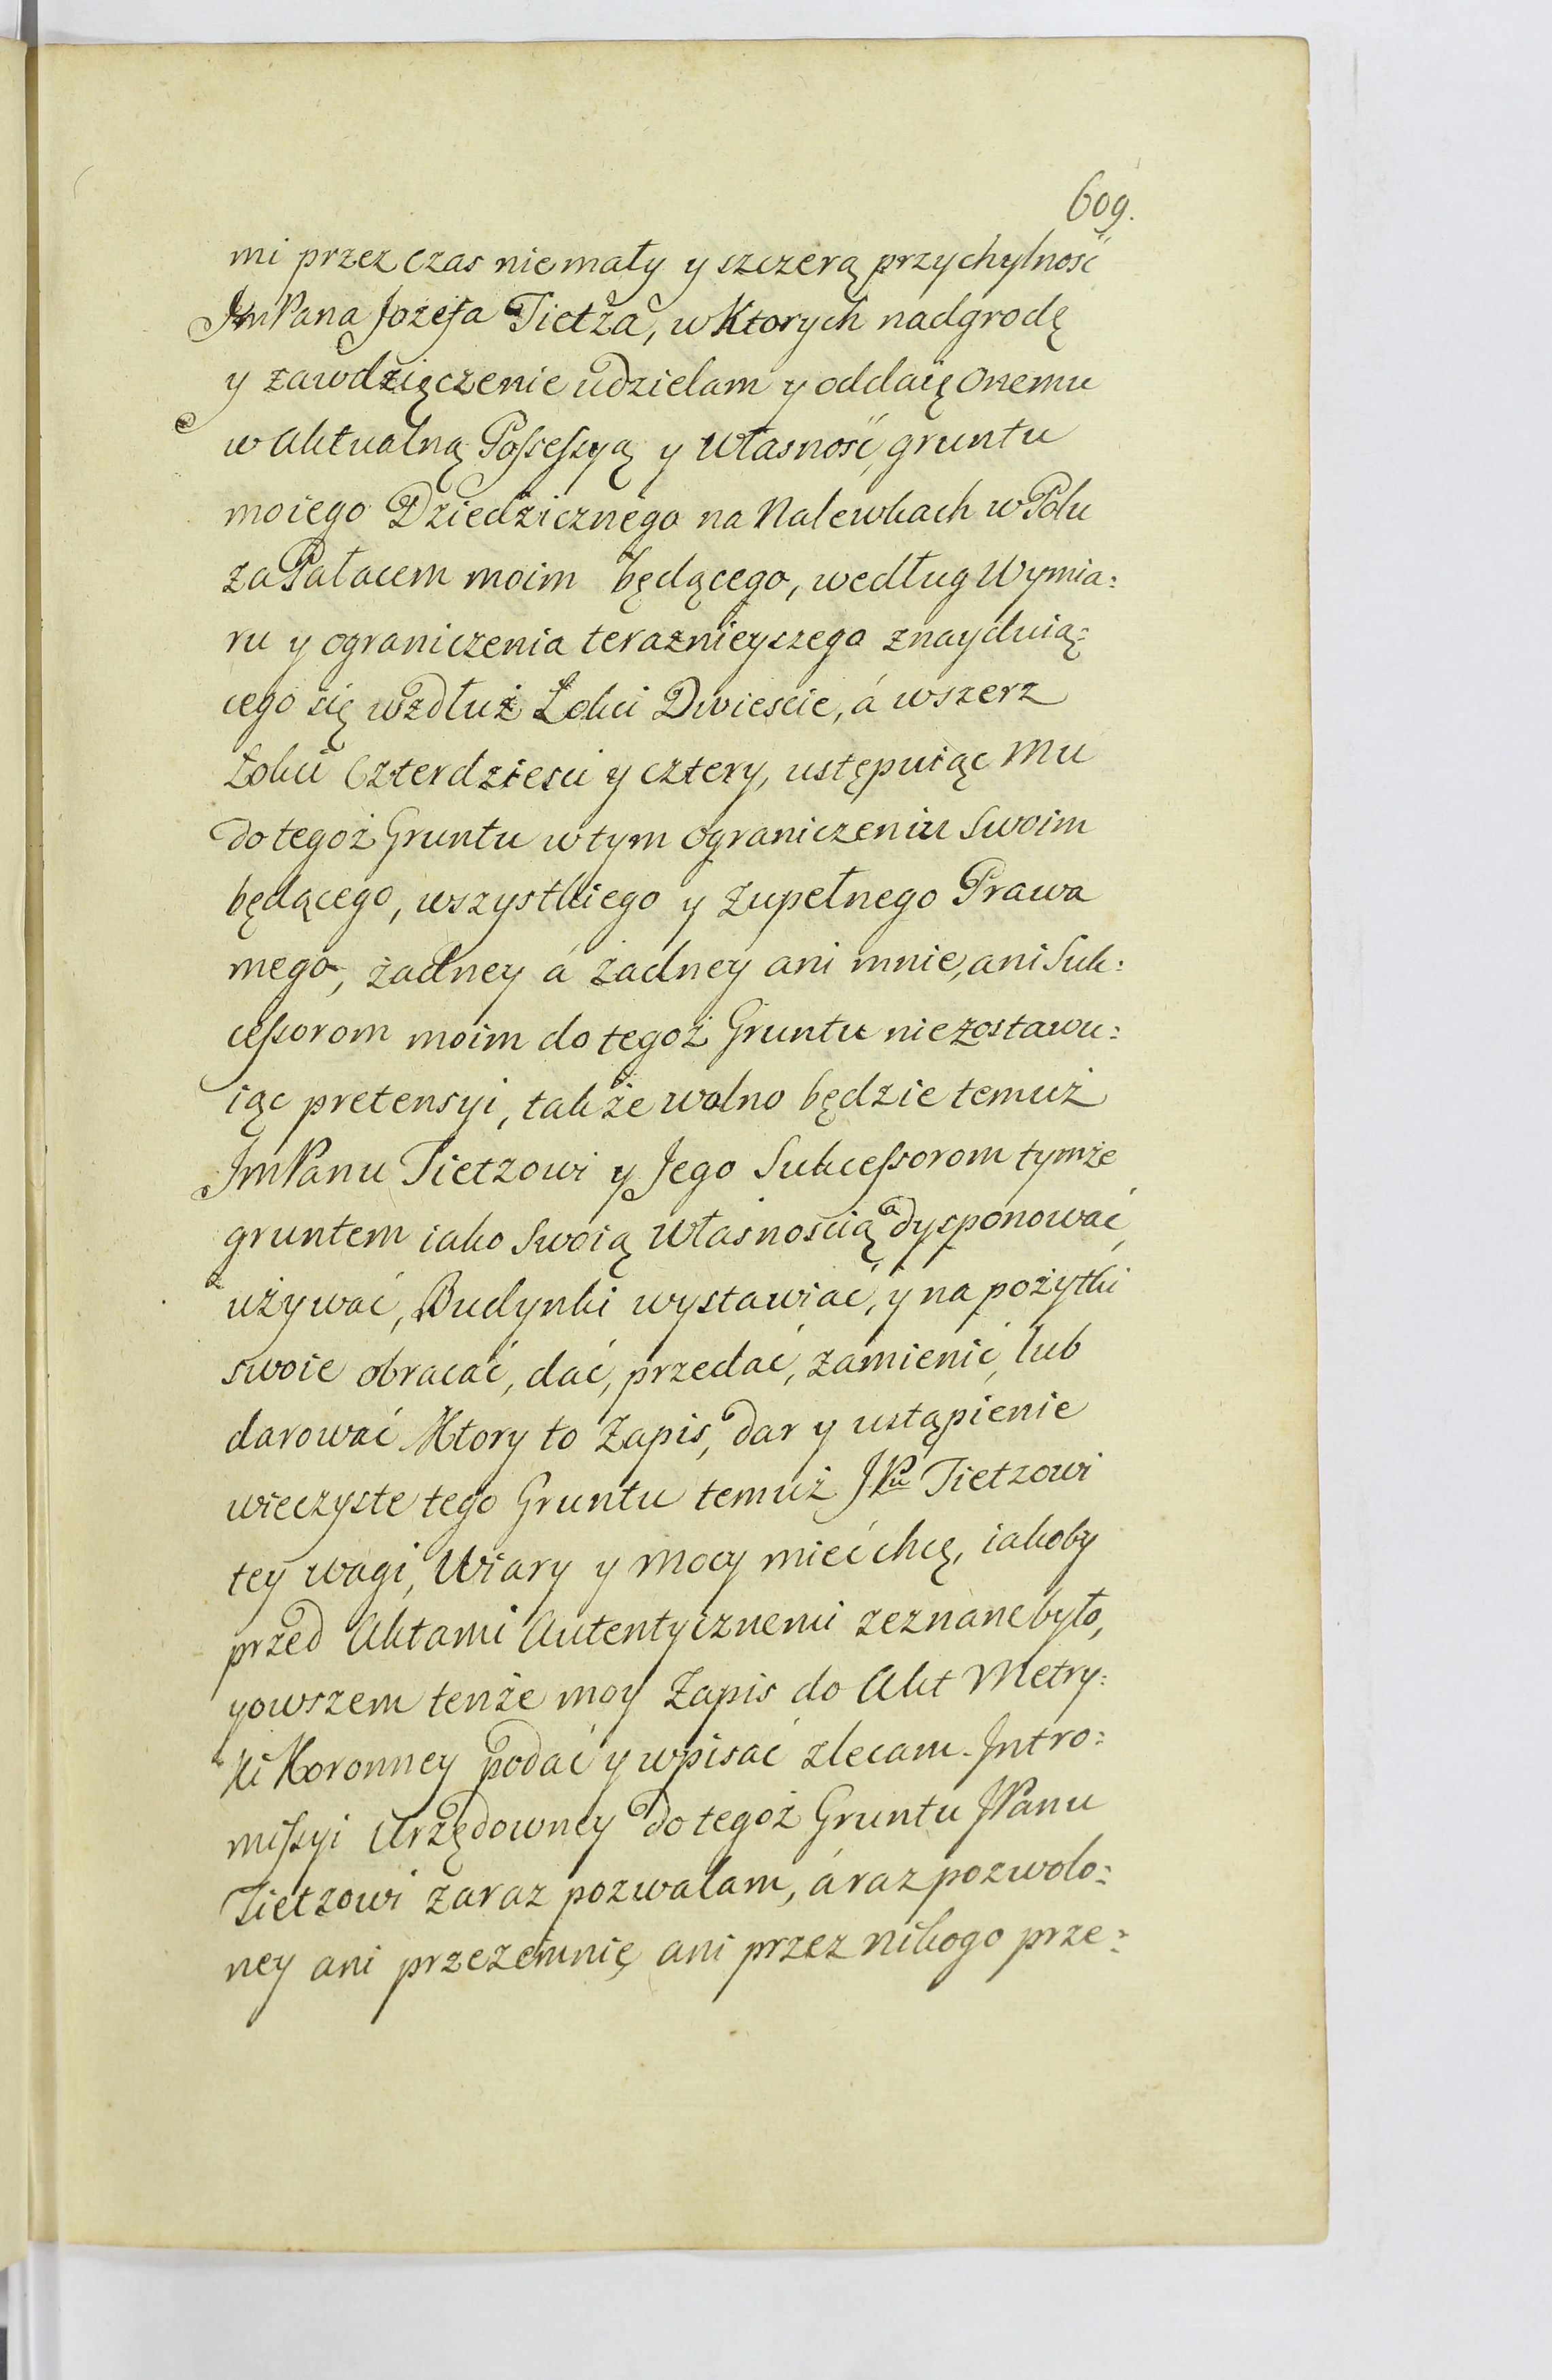 609.
mi przez czas niemały y szczerą przychylność
JmPana Jozefa Tietza, w Ktorych nadgrodę
y zawdzięczenie udzielam y oddaię onemu
w Aktualną Possessyą y Własność, gruntu
moiego Dziedzicznego na Nalewkach w Polu
za Pałacem moim będącego, według Wymia:
ru y ograniczenia teraznieyszego znayduią:
cego się wzdłuż Łokci Dwiescie, á wszerz
Łokci Czterdziesci y cztery, ustępuiąc Mu
do tegoż Gruntu w tym ograniczeniu Swoim
będącego, wszystkiego y zupełnego Prawa
mego, żadney á żadney ani mnie, ani Suk:
cessorom moim do tegoż Gruntu niezostawu:
iąc pretensyi, tak że wolno będzie temuż
JmPanu Tietzowi y Jego Sukcessorom tymże
gruntem iako Swoią własnoscią dysponować,
używać, Budynki wystawiać, y na pożytki
swoie obracać, dać, przedać, zamienić, lub
darować. Ktory to Zapis, dar y ustąpienie
wieczyste tego Gruntu temuż JPu Tietzowi
tey wagi, Wiary y Mocy mieć chcę, iakoby
przed Aktami Autentycznemi zeznane było,
y owszem tenże moy Zapis do Akt Metry:
ki Koronney podać y wpisać zlecam. Intro:
missyi Urzędowney do tegoż Gruntu JPanu
Tietzowi zaraz pozwalam, á raz pozwolo:
ney ani przezemnię ani przez nikogo prze: